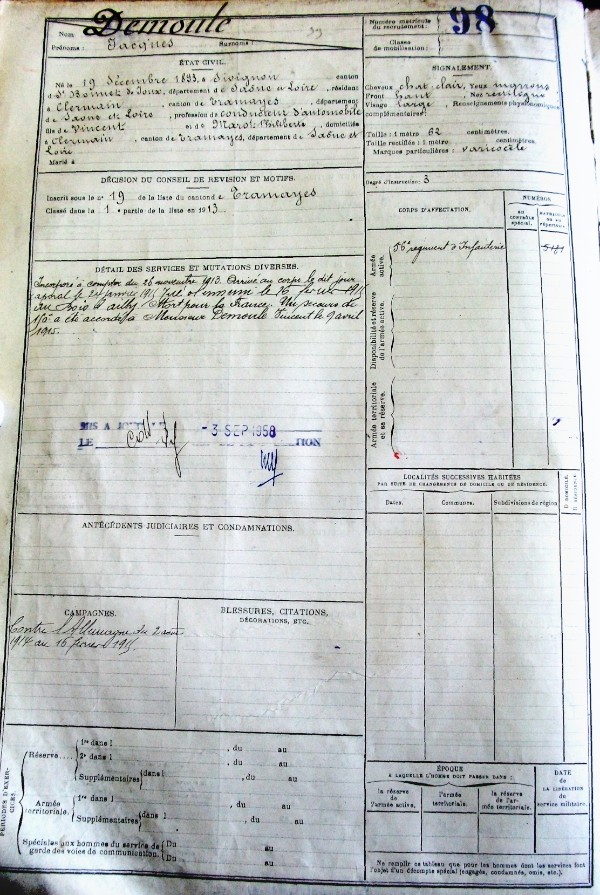 Nom Demoule
Prénoms : Jacques Surnoms :
Numéro matricule du recrutement : 98
Classe de mobilisation :
ÉTAT CIVIL.
Né le 19 Décembre 1893, à Sivignon canton
d St Bonnet d Joux, département d Saône et Loire, résidant
à Clermain, canton de Tramayes, département
de Saône et Loire, profession de Conducteur d'automobile
fils de Vincent et de Marot Philiberte domiciliés
à Clermain, canton de Tramayes, département de Saône et
Loire
Marié à
SIGNALEMENT.
Cheveux chat. clair, Yeux marrons
Front haut Nez rectiligne
Visage large, Renseignements physionomiques
complémentaires :
Taille : 1 mètre 62 centimètres.
Taille rectifiée : 1 mètre centimètres.
Marques particulières : varicocèle
Degré d'instruction : 3
DÉCISION DU CONSEIL DE REVISION ET MOTIFS.
Inscrit sous le n° 19 de la liste du canton d e Tramayes
Classé dans la 1e partie de la liste en 1913
CORPS D'AFFECTATION.
NUMÉROS
au contrôle spécial.
matricule ou au répertoire.
Armée active.
56e régiment d'Infanterie
Disponibilité et réserve de l'armée active.
Armée territoriale et sa réserve.
DÉTAIL DES SERVICES ET MUTATIONS DIVERSES.
Incorporé à compter du 26 novembre 1913. Arrivé au corps le dit jour
le 16 février 191
au Bois d'ailly. Mort pour la France. Un secours de
150 a été accordé à Monsieur Demoule Vincent le 9 avril
1915.
MIS A
LE -3 SEP 1958 TION
LOCALITÉS SUCCESSIVES HABITÉES
PAR SUITE DE CHANGEMENTS DE DOMICILE OU DE RÉSIDENCE.
Dates. Communes. Subdivisions de région D. DOMICILE. R. RÉSIDENCE.
ANTÉCÉDENTS JUDICIAIRES ET CONDAMNATIONS.
CAMPAGNES.
Contre l'Allemagne du 2 août
1914 au 16 février 1915.
BLESSURES, CITATIONS,
DÉCORATIONS, ETC.
PÉRIODES D'EXERCICES.
Réserve....
1re dans l , du au
2e dans l , du au
Supplémentaires (dans l , du au
Armée territoriale.
1re dans l , du au
Supplémentaires (dans l , du au
Spéciales aux hommes du service de garde des voies de communication.
Du au
Du au
ÉPOQUE
A LAQUELLE L'HOMME DOIT PASSER DANS :
la réserve de l'armée active.
l'armée territoriale.
la réserve de l'armée territoriale.
DATE
DE LA LIBÉRATION
du service militaire.
Ne remplir ce tableau que pour les hommes dont les services font
l'objet d'un décompte spécial (engagés, condamnés, omis, etc.).